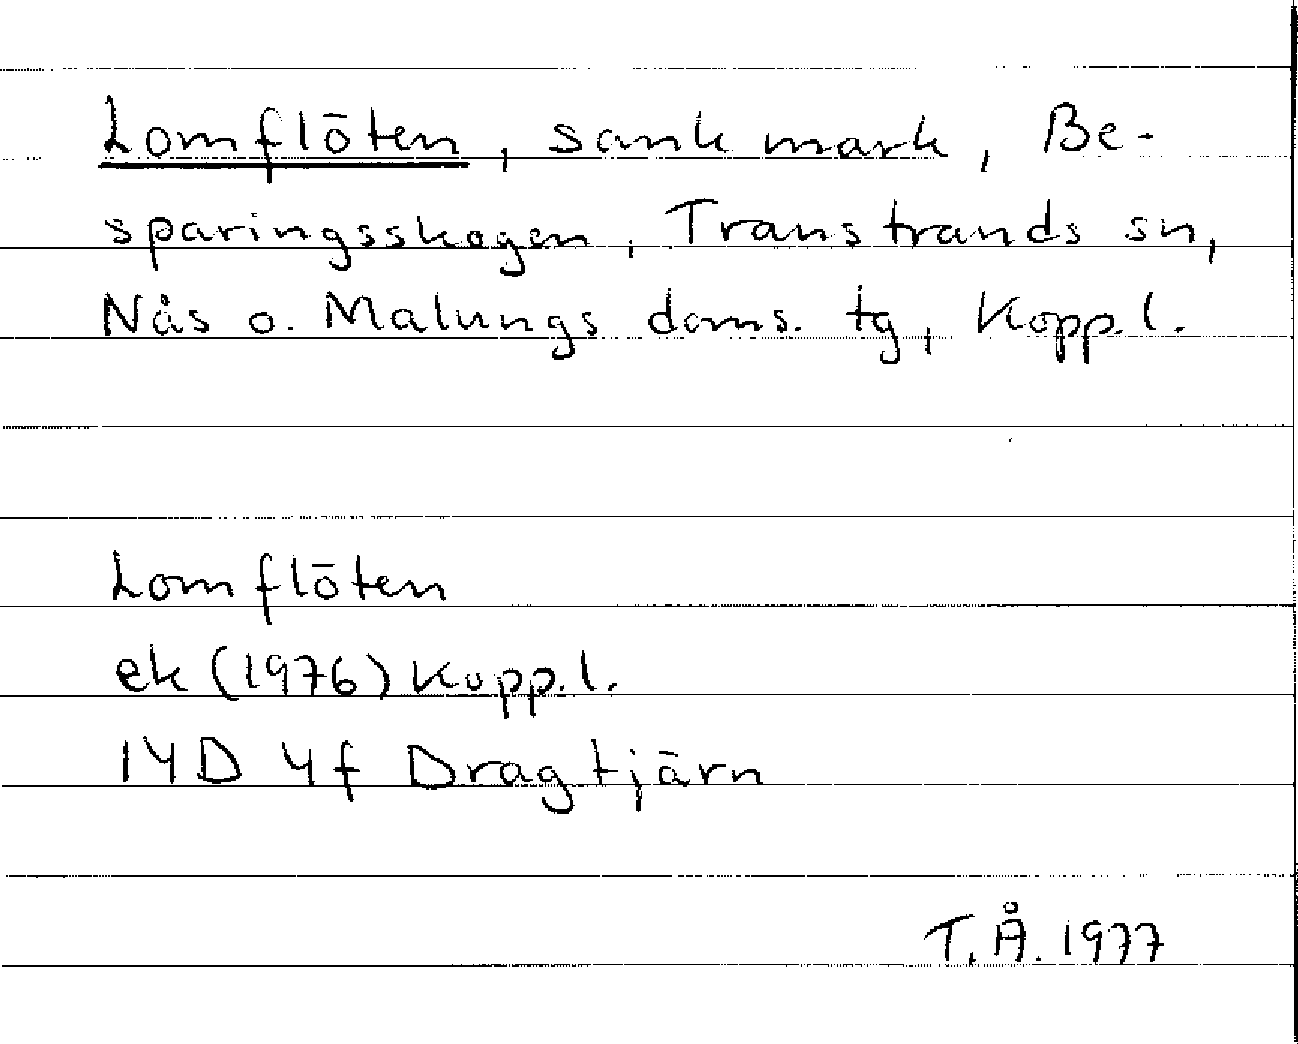 Lomflöten, sank mark, Be-
sparingsskogen, Transtrands sn,
Nås o. Malungs doms. tg, Kopp.l.
Lomflöten
ek (1976) Kopp.l.
14D 4f Dragtjärn
T.Å. 1977